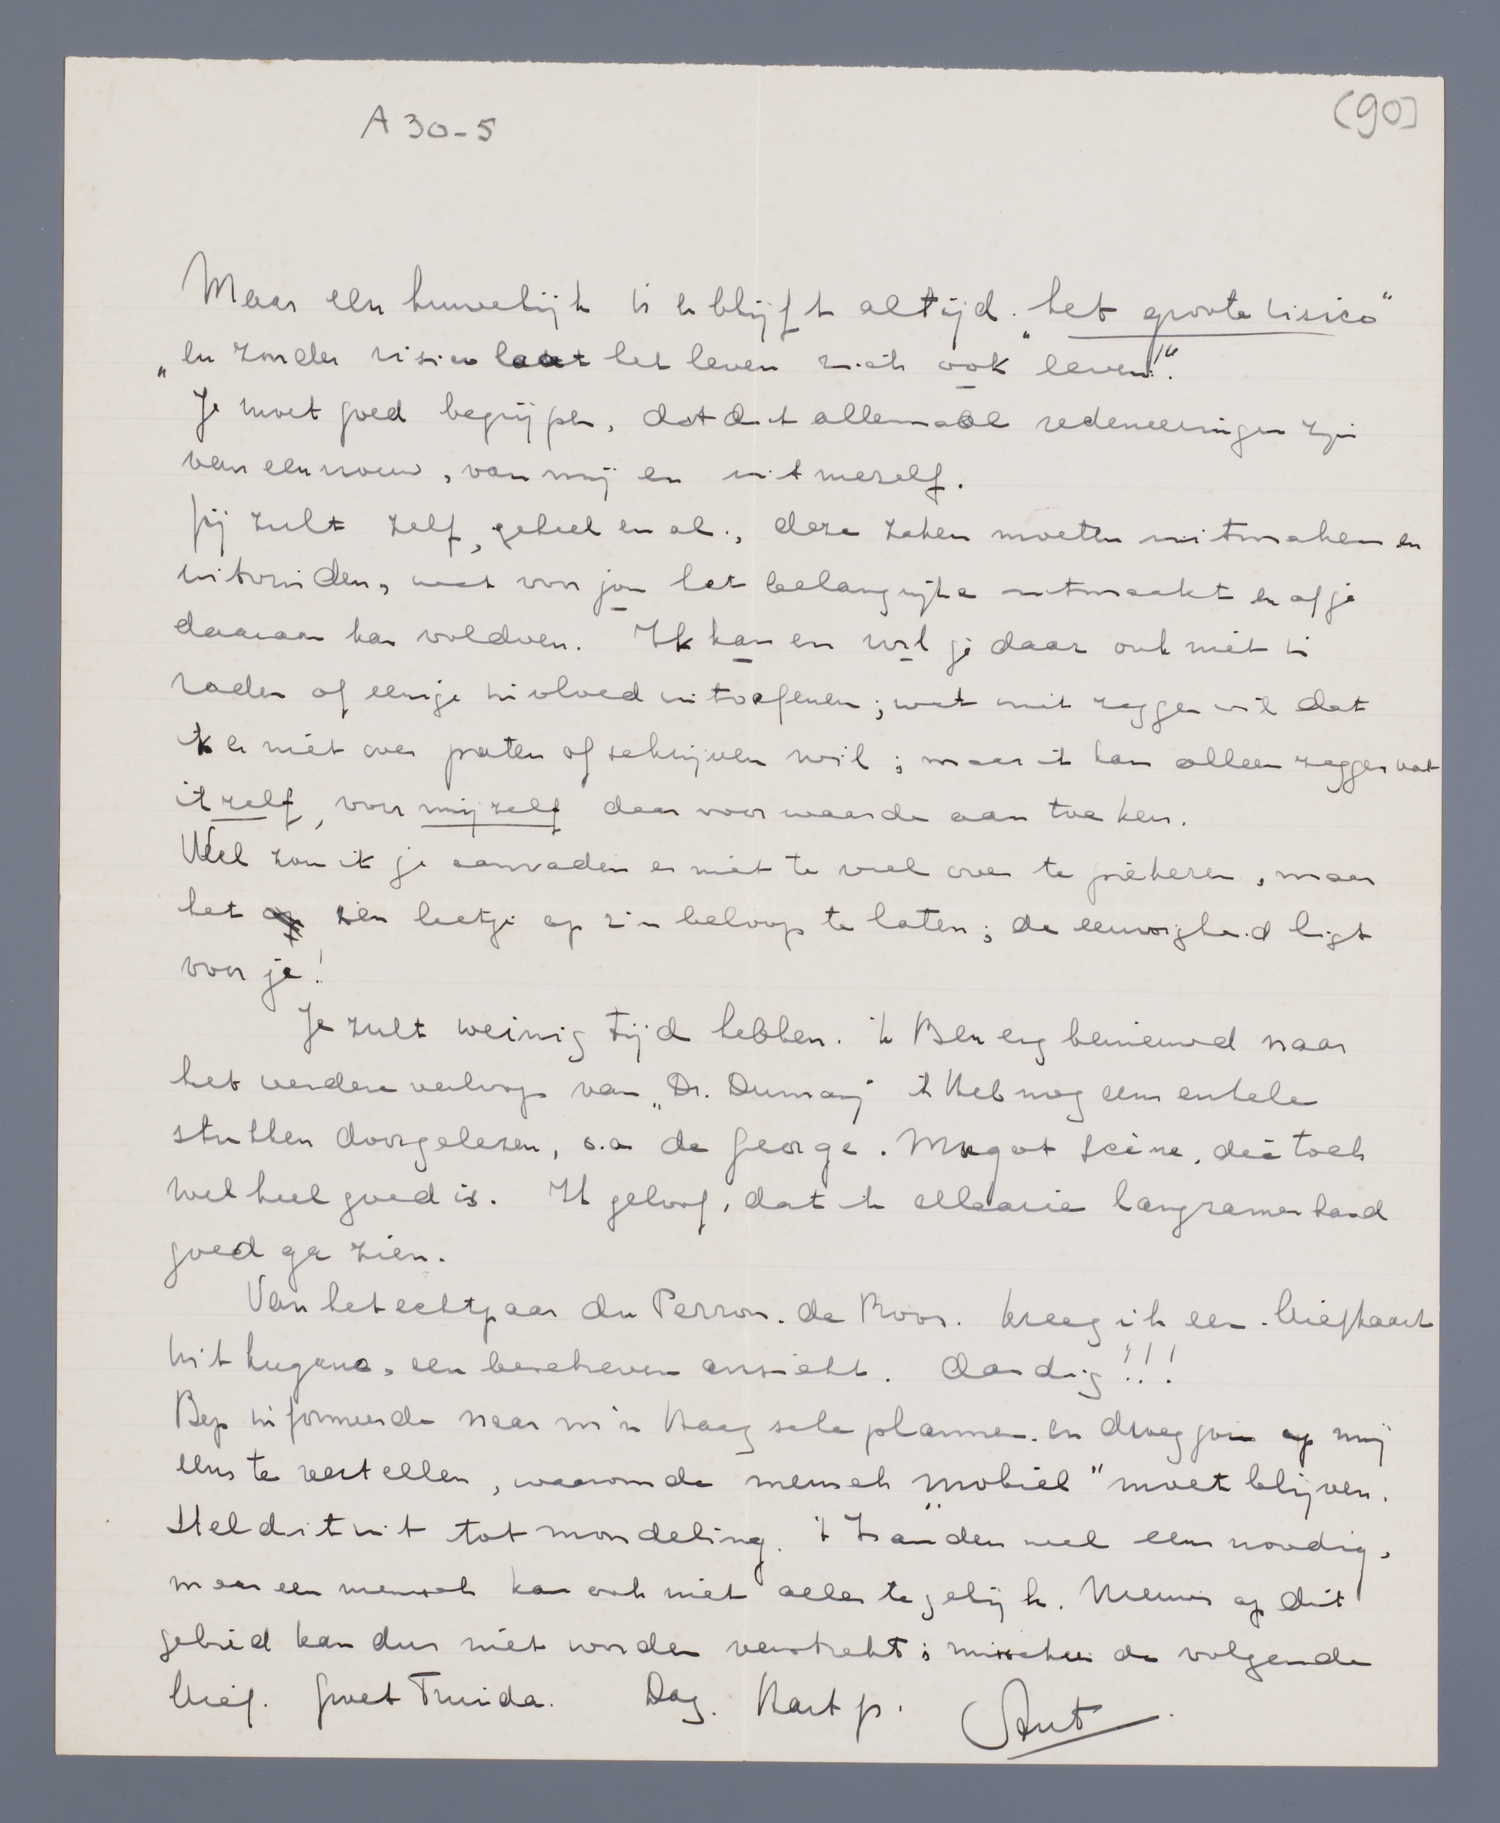 A 30-5
(90)
Maar een huwelijk is en blijft altijd „het groote risico"
„en zonder risico laat het leven zich ook leven!".
Je moet goed begrijpen, dat dit allemaal redeneeringen zijn
van een vrouw, van mij en uit mezelf.
Jij zult zelf, geheel en al, deze zaken moeten uitmaken en
uitvinden, wat voor jou het belangrijke uitmaakt en of je
daaraan kan voldoen. Ik kan en wil je daar ook niet in
raden of eenige invloed uitoefenen; wat niet zeggen wil dat
ik er niet over praten of schrijven wil; maar ik kan alleen zeggen wat
ik zelf, voor mijzelf daar voor waarde aan toe ken.
Wel zou ik je aanraden er niet te veel over te piekeren, maar
het een beetje op z'n beloop te laten; de eeuwigheid ligt
voor je!
Je zult weinig tijd hebben. Ik Ben erg benieuwd naar
het verdere verloop van „Dr. Dumay" ik Heb nog eens enkele
stukken doorgelezen, o.a. de George. Margot scène, die toch
wel heel goed is. Ik geloof, dat ik ellaarie langzamerhand
goed ga zien.
Van het echtpaar du Perron. de Roos. kreeg ik een briefkaart
uit Lugano, een beschreven ansicht. Aardig!!!
Bep informeerde naar m'n Haagsche plannen. en droeg jou op mij
eens te vertellen, waarom de mensch „mobiel" moet blijven.
Stel dit uit tot mondeling. 't Is anders wel eens noodig,
maar een mensch kan ook niet alles tegelijk. Nieuws op dit
gebied kan dus niet worden verstrekt; misschien de volgende
brief. Groet Truida. Dag. Hart p. Ant